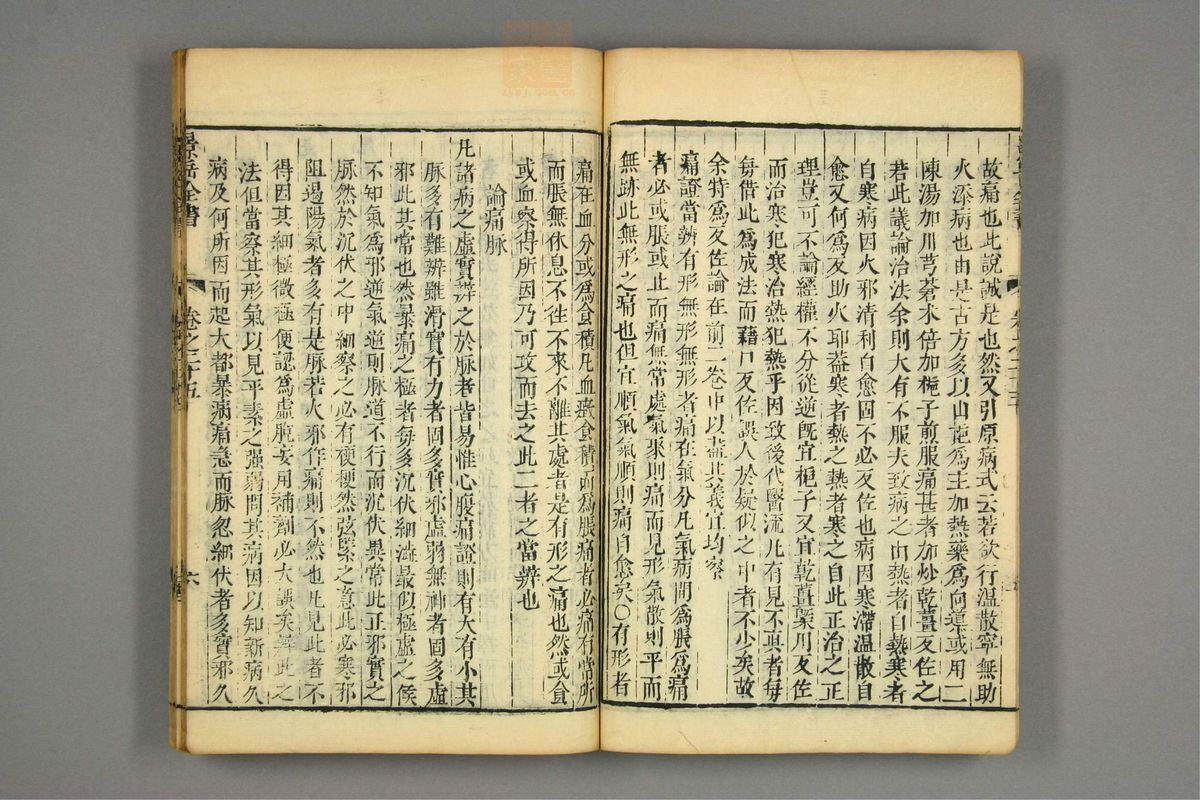 故痛也此說誠是也然又引原病式云若欲行溫散寧無助
火添病也由是古方多以山梔爲主加熱藥爲向導或用二
陳湯加川芎蒼朮倍加梔子煎服痛甚者加炒乾薑反佐之
若此議論治法余則大有不服夫致病之由熱者自熱寒者
自寒病因火邪清利自愈固不必反佐也病因寒滯溫散自
愈又何爲反助火耶葢寒者熱之熱者寒之自此正治之正
理豈可不論經權不分從逆旣宜梔子又宜乾薑槩用反佐
而治寒犯寒治熱犯熱乎因致後代醫流凡有見不真者每
每借此爲成法而藉口反佐誤人於疑似之中者不少矣故
余特爲反佐論在前二卷中以盡其義宜均察
痛證當辨有形無形無形者痛在氣分凡氣病而爲脹爲痛
者必或脹或止而痛無常處氣聚則痛而見形氣散則平而
無跡此無形之痛也但宜順氣氣順則痛自愈矣○有形者
痛在血分或爲食積凡血癥食積而爲脹痛者必痛有常所
而脹無休息不徃不來不離其處者是有形之痛也然或食
或血察得所因乃可攻而去之此二者之當辨也
論痛脉
凡諸病之虛實辨之於脉者皆易惟心腹痛證則有大有小其
脉多有難辨雖滑實有力者固多實邪虛弱無神者固多虛
邪此其常也然暴痛之極者每多沉伏細澁最似極虛之候
不知氣爲邪逆氣逆則脉道不行而沉伏異常此正邪實之
脉然於沉伏之中細察之必有梗梗然弦緊之意此必寒邪
阻遏陽氣者多有是脉若火邪作痛則不然也凡見此者不
得因其細極微極便認爲虛脫妄用補劑必大誤矣辨此之
法但當察其形氣以見平素之强弱問其病因以知新病久
病及何所因而起大都暴病痛急而脉忽細伏者多實邪久
景岳全書
卷之二十五
六